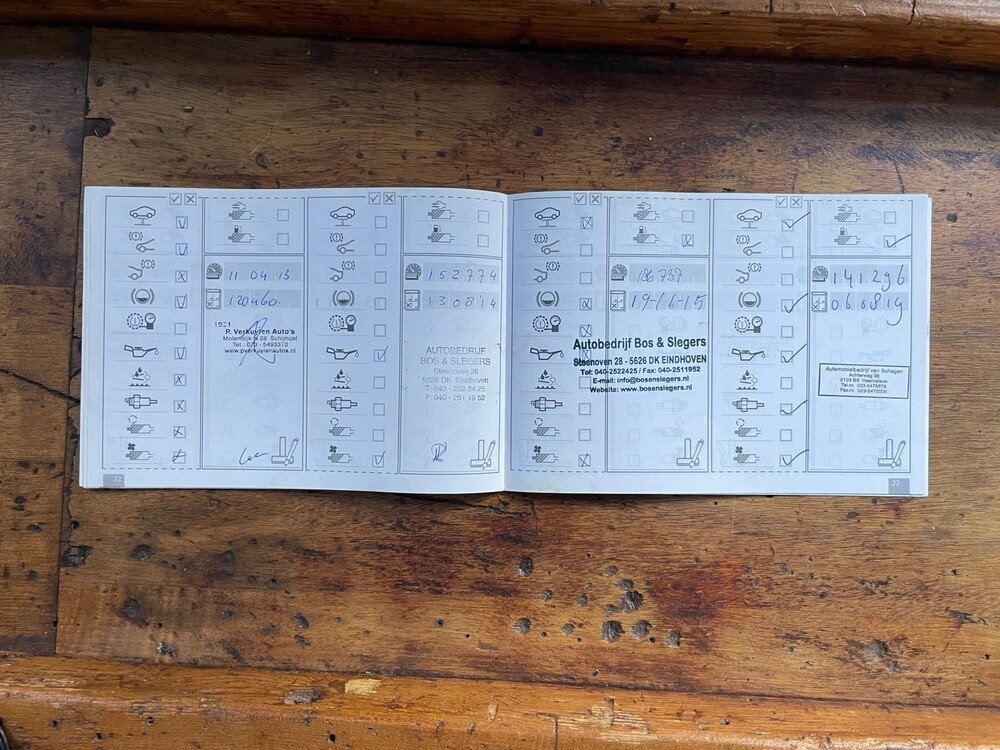 11 04 13
120460.
1931
P. Verkuylen Auto's
Molendijk N 69 Schijndel
Tel.: 073 - 5493370
www.pverkuylenautos.nl
22
152774
130814
AUTOBEDRIJF
BOS & SLEGERS
Steenoven 28
5626 DK Eindhoven
T: 040 - 252 24 25
F: 040 - 251 19 52
186737
Autobedrijf Bos & Slegers
Steenoven 28 - 5626 DK EINDHOVEN
Tel: 040-2522425 / Fax: 040-2511952
E-mail: info@bosenslegers.nl
Website: www.bosenslegers.nl
141296
060819
Automobielbedrijf van Schagen
Achterweg 38
2103 SX Heemstede
23